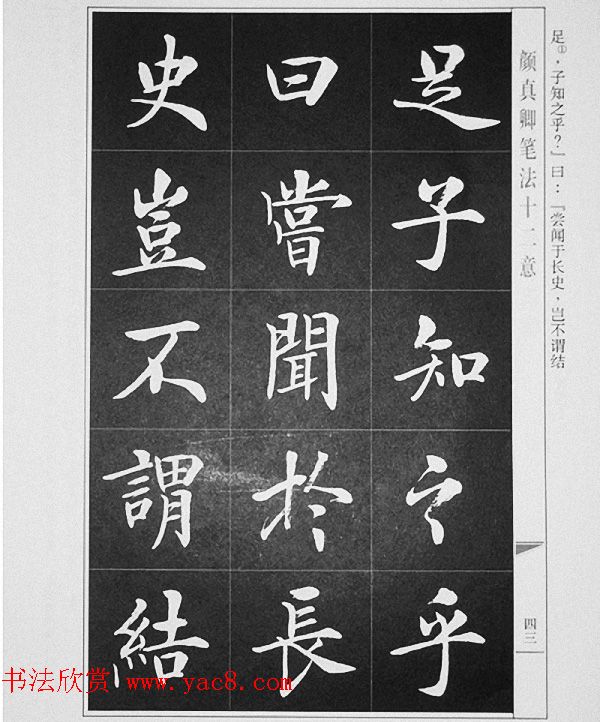 足①，子知之乎？」曰：「尝闻于长史，岂不谓结
颜真卿笔法十二意
四三
足子知之乎
曰嘗聞於長
史豈不謂結
书法欣赏 www.yac8.com